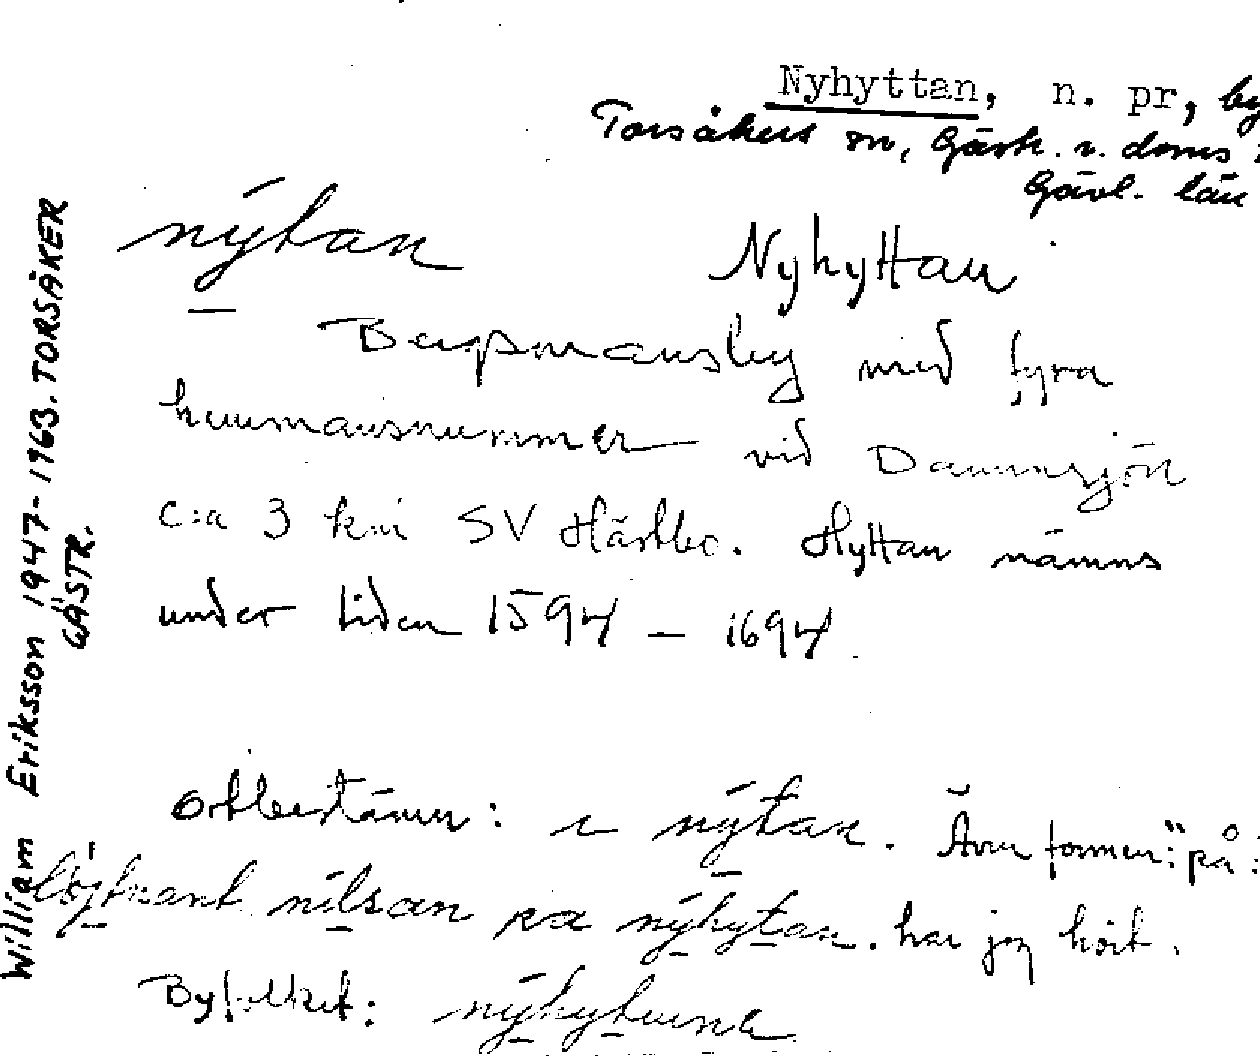 Nyhyttan, n. pr, by
Torsåkers sn, Gästr. v. doms
Gävl. län
nýtan Nyhyttan
Bergsmansby med fyra
hemmansnummer vid Dammsjön
c:a 3 km SV Hästbo. Hyttan nämns
under tiden 1594 – 1694.
Ortbestämn: i nýtan. Även formen: "på:
löjtnant nilsan pa nýhytan. har jag hört.
Byfolket:
William Eriksson 1947-1963. TORSÅKER
GÄSTR.